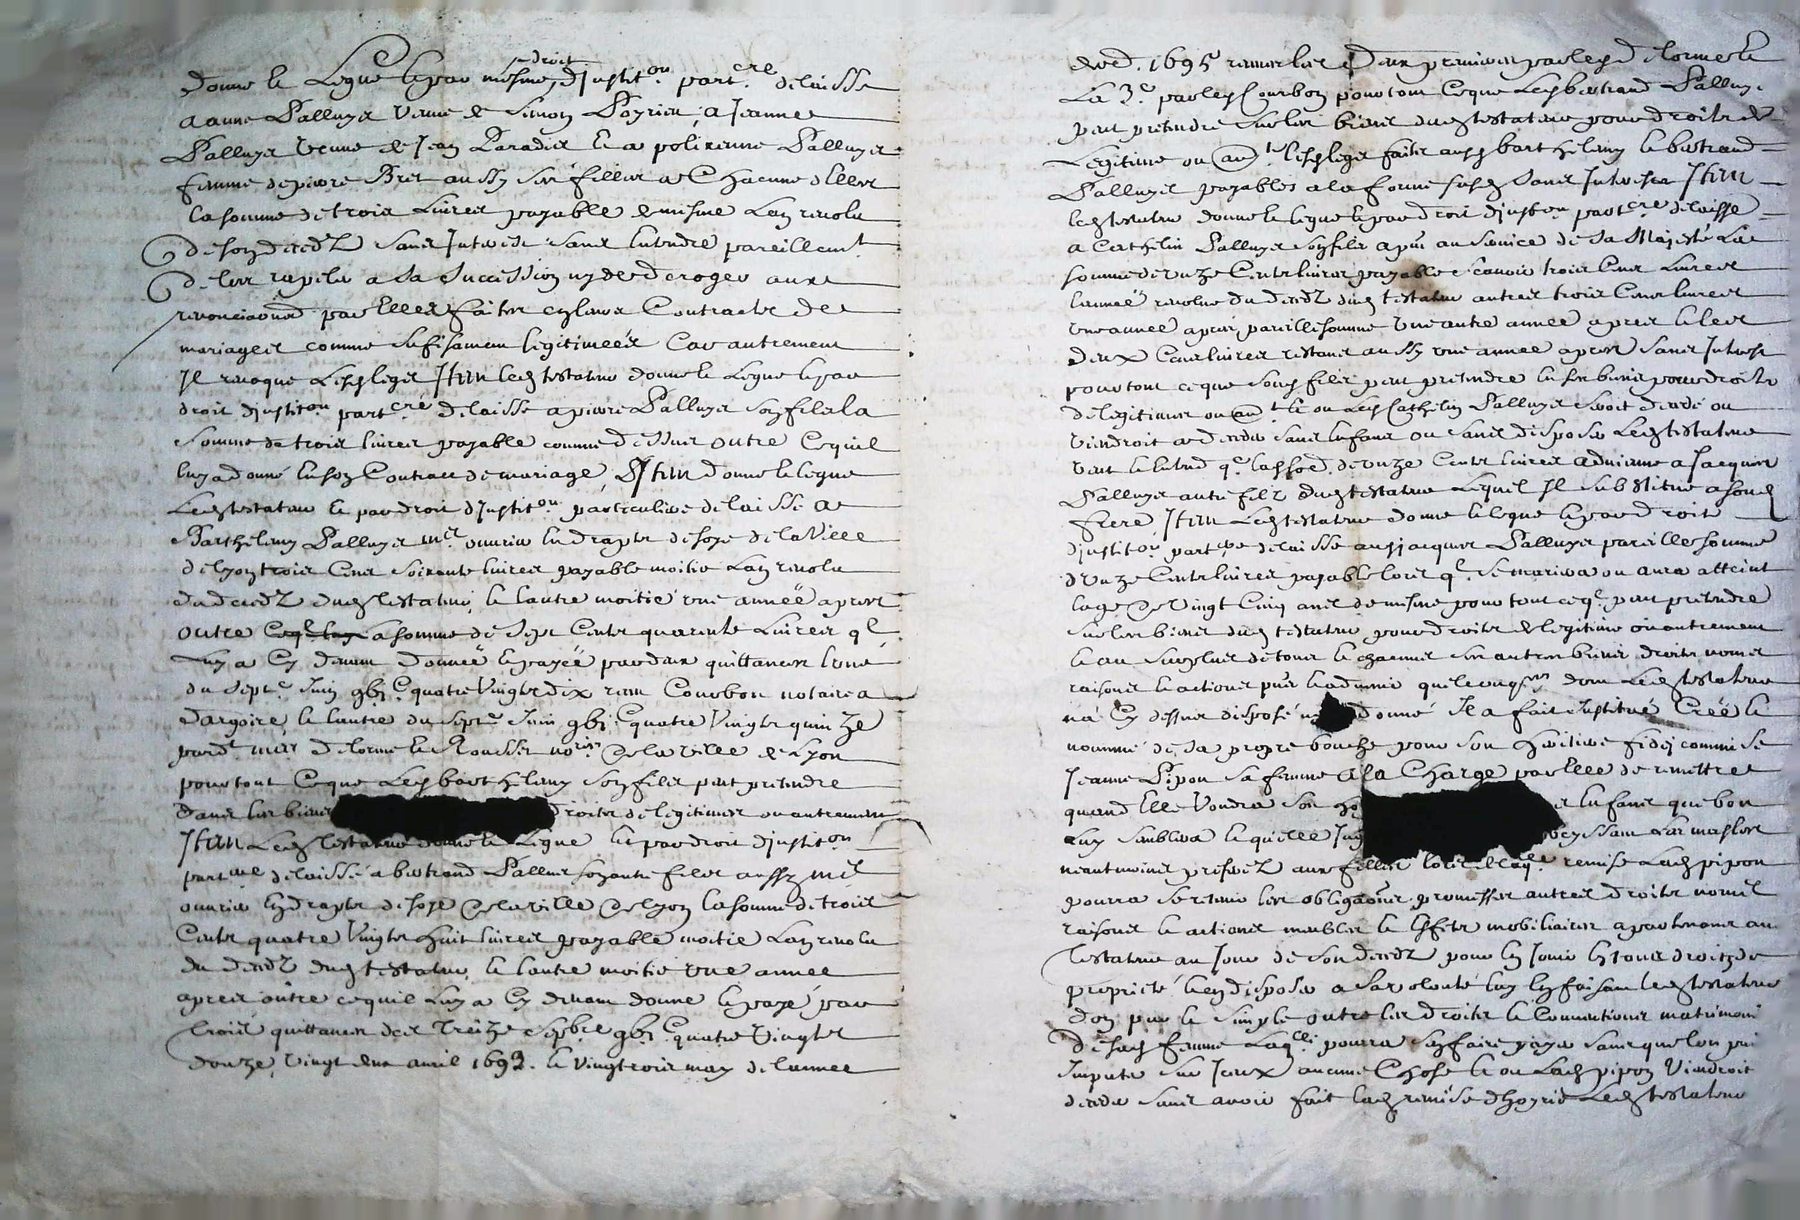 donne et Legue et par mesme droit d'justit^on part^ere delaisse
a anne Palluyer veuve de Simon Poyrieu, a Jeanne
Palluyer veuve de Jean Paradis et a polixenne Palluyer
femme de pierre Bret aussy ses filles a Chacune d'elles
la somme de trois Livres payable de mesme L'an revolu
de son deced^z sans Interest sans entendre pareillem^t
de les rapeler a sa succession ny desroger aux
renonciaon^s par Elles faites en leurs Contracts de
mariages comme sufisamen legitimeés Car autrement
Il revoque Lesd legés Item led testateur donne et Legue et par
droit d'justit^on part^ere delaisse a pierre Palluyer son fils la
somme de trois livres payable comme dessus outre Cequil
luy a donné en son Contract de mariage, Item donne et legue
Led testateur et par droit d'Justit^on particuliere delaisse a
Barthelemy Palluyer m^e ouvrier en draps de soye de la Ville
de lyon trois Cens soixante livres payable moitié L'an revolu
du deced^z dud testateur, et lautre moitié une année apres
outre la somme de Sept Cents quarante Livres q^l
Luy a Cy devant donneé et payeé par deux quittances l'une
du sept^e Juin gbj^c quatre Vingts dix recu Courbon notaire a
dargoire et l'autre du sept^e Juin gbj^c quatre Vingts quinze
pard^t me^s delorme et Rousset no^res de la ville de Lyon
pour tout Ceque Led barthelemy son fils peut pretendre
dans les biens droits de legitimes ou autrement
Item Led testateur donne et Legue et par droit d'justit^on
part^ere delaissé a bertrand Palluier son autre fils aussy m^e
ouvrier en draps de soye de la ville de lyon la somme de trois
Cents quatre Vingts huit livres payable moitié L'an revolu
du deced^z dud testateur, et l'autre moitié une année
apres outre cequil Luy a Cy devant donné et payé par
trois quittances des treize sep^bre gbj^c quatre Vingts
douze, vingt deux avril 1693. et vingt trois may de l'année
1695 les Deux premieres par les d delorme et
La 3^e par led Courbon pour tout Ceque Led bertrand Palluyer
peut pretendre sur les biens dud testateur pour droits de
Legitime ou au^t Lesd legés faits ausd barthelemy et bertrand
Palluyer payables a la forme susd sans Interest Item
led testateur donne et legue et par droit d'justi^on part^ere delaisse
a Cathelin Palluyer son fils a pnt au service de sa Majesté La
somme de onze Cents livres payable scavoir trois Cens Livres
l'anneé revolue du deced^z dud testateur autres trois Cens livres
une année apres, pareille somme une autre année apres et les
deux Cens livres restans aussy une année apres sans Interest
pour tout ceque sond fils peut pretendre en ses biens pour droits
de legitimes ou au^t et ou Led Cathelin Palluyer seroit decedé ou
viendroit a deceder sans Enfans ou sans disposer Led testateur
veut et entend q^e lad so^e de onze Cents livres advienne a Jacques
Palluyer autre fils dud testateur Lequel Il substitue a sond
frere Item Led testateur donne et legue et par droit
d'justit^on part^ere delaisse aud jacques Palluyer pareille somme
d'onze Cents livres payable lors q^l se mariera ou aura atteint
l'age de Vingt Cinq ans de mesme pour tout ceq^l peut pretendre
sur les biens dud testateur pour droits de legitime ou autrement
et au surplus de tous et chacuns ses autres biens droits noms
raisons et actions pnts et advenir quelconques dont Led testateur
na Cy dessus disposé donné Il a fait Justitué Créé et
nommé de sa propre bouche pour son heritiere fideicommise
Jeanne Pipon sa femme a la Charge par Elle de remettre
quand Elle Voudra son Enfans que bon
Luy semblera et quelle Jug les masles
neantmoins preferez aux filles lors de laq^le remise Lad pipon
pourra se retenir les obligaons promesses autres droits noms
raisons et actions meubles et Effets mobiliaires apartenans au
Testateur au Jour de son deced^z pour en Jouir En tous droits de
proprieté et en disposer a sa volonté luy En faisant led testateur
don pur et simple outre les droits et Conventions matrimoni
de sad femme Laq^lle pourra sen faire payer sans que l'on puis
Imputer sur Jceux aucune Chose et ou Lad pipon Viendroit
deceder sans avoir fait lad remise d'hoyrie Led testateur